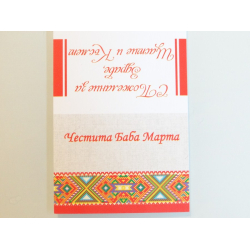 С Пожелание за
Здраве,
Щастие и Късмет
Честита Баба Марта